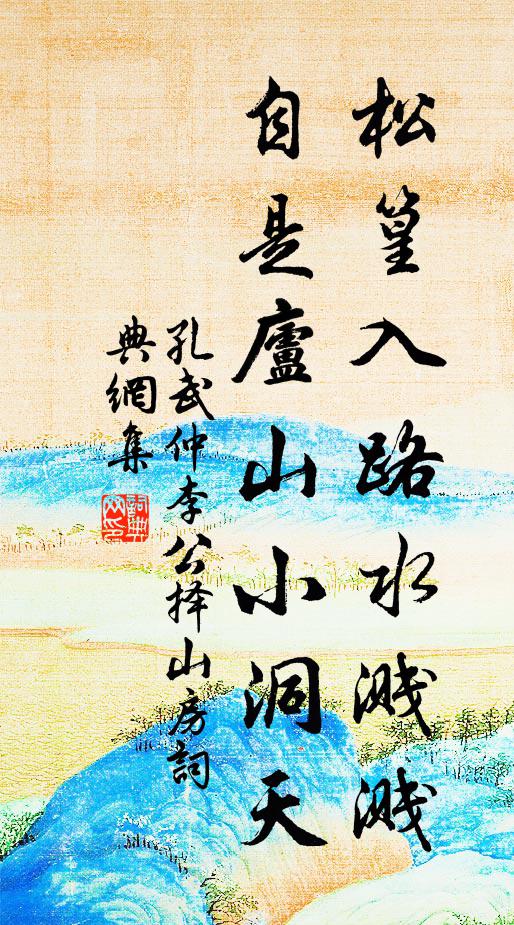 松篁入路水溅溅
自是廬山小洞天
孔武仲李公择山房詞
典網集
詞典网印